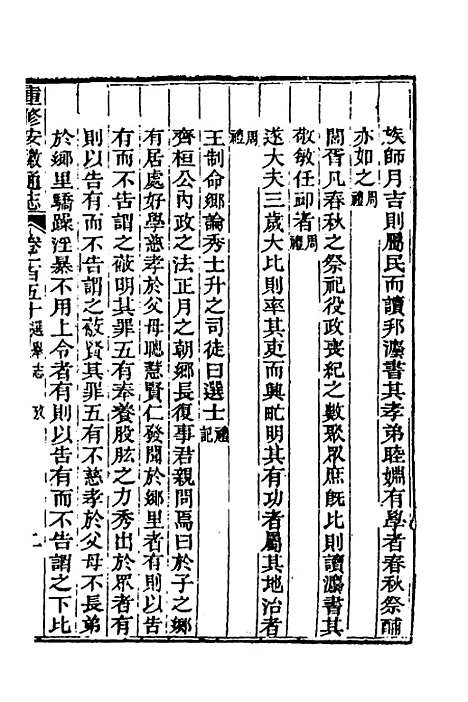 族師月吉則屬民而讀邦灋書其孝弟睦婣有學者春秋祭酺
亦如之周禮
閭胥凡春秋之祭祀役政喪紀之數聚眾庶旣比則讀灋書其
敬敏任卹者周禮
遂大夫三歲大比則率其吏而興甿明其有功者屬其地治者
周禮
王制命鄉論秀士升之司徒曰選士禮記
齊桓公內政之法正月之朝鄉長復事君親問焉曰於子之鄉
有居處好學慈孝於父母聰慧賢仁發聞於鄉里者有則以告
有而不告謂之蔽明其罪五有奉養股肱之力秀出於眾者有
則以告有而不告謂之蔽賢其罪五有不慈孝於父母不長弟
於鄉里驕躁淫暴不用上令者有則以告有而不告謂之下比
重修安徽通志 卷一百五十 選舉志 攷 二